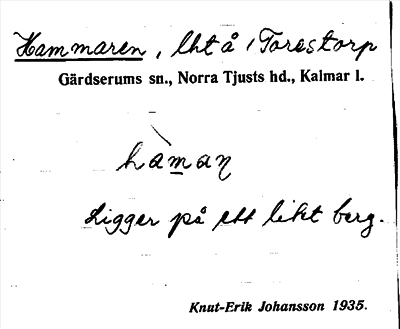 Hammaren, lht å / Torestorp
Gärdserums sn., Norra Tjusts hd., Kalmar l.
hàman
Ligger på ett likt berg.
Knut-Erik Johansson 1935.